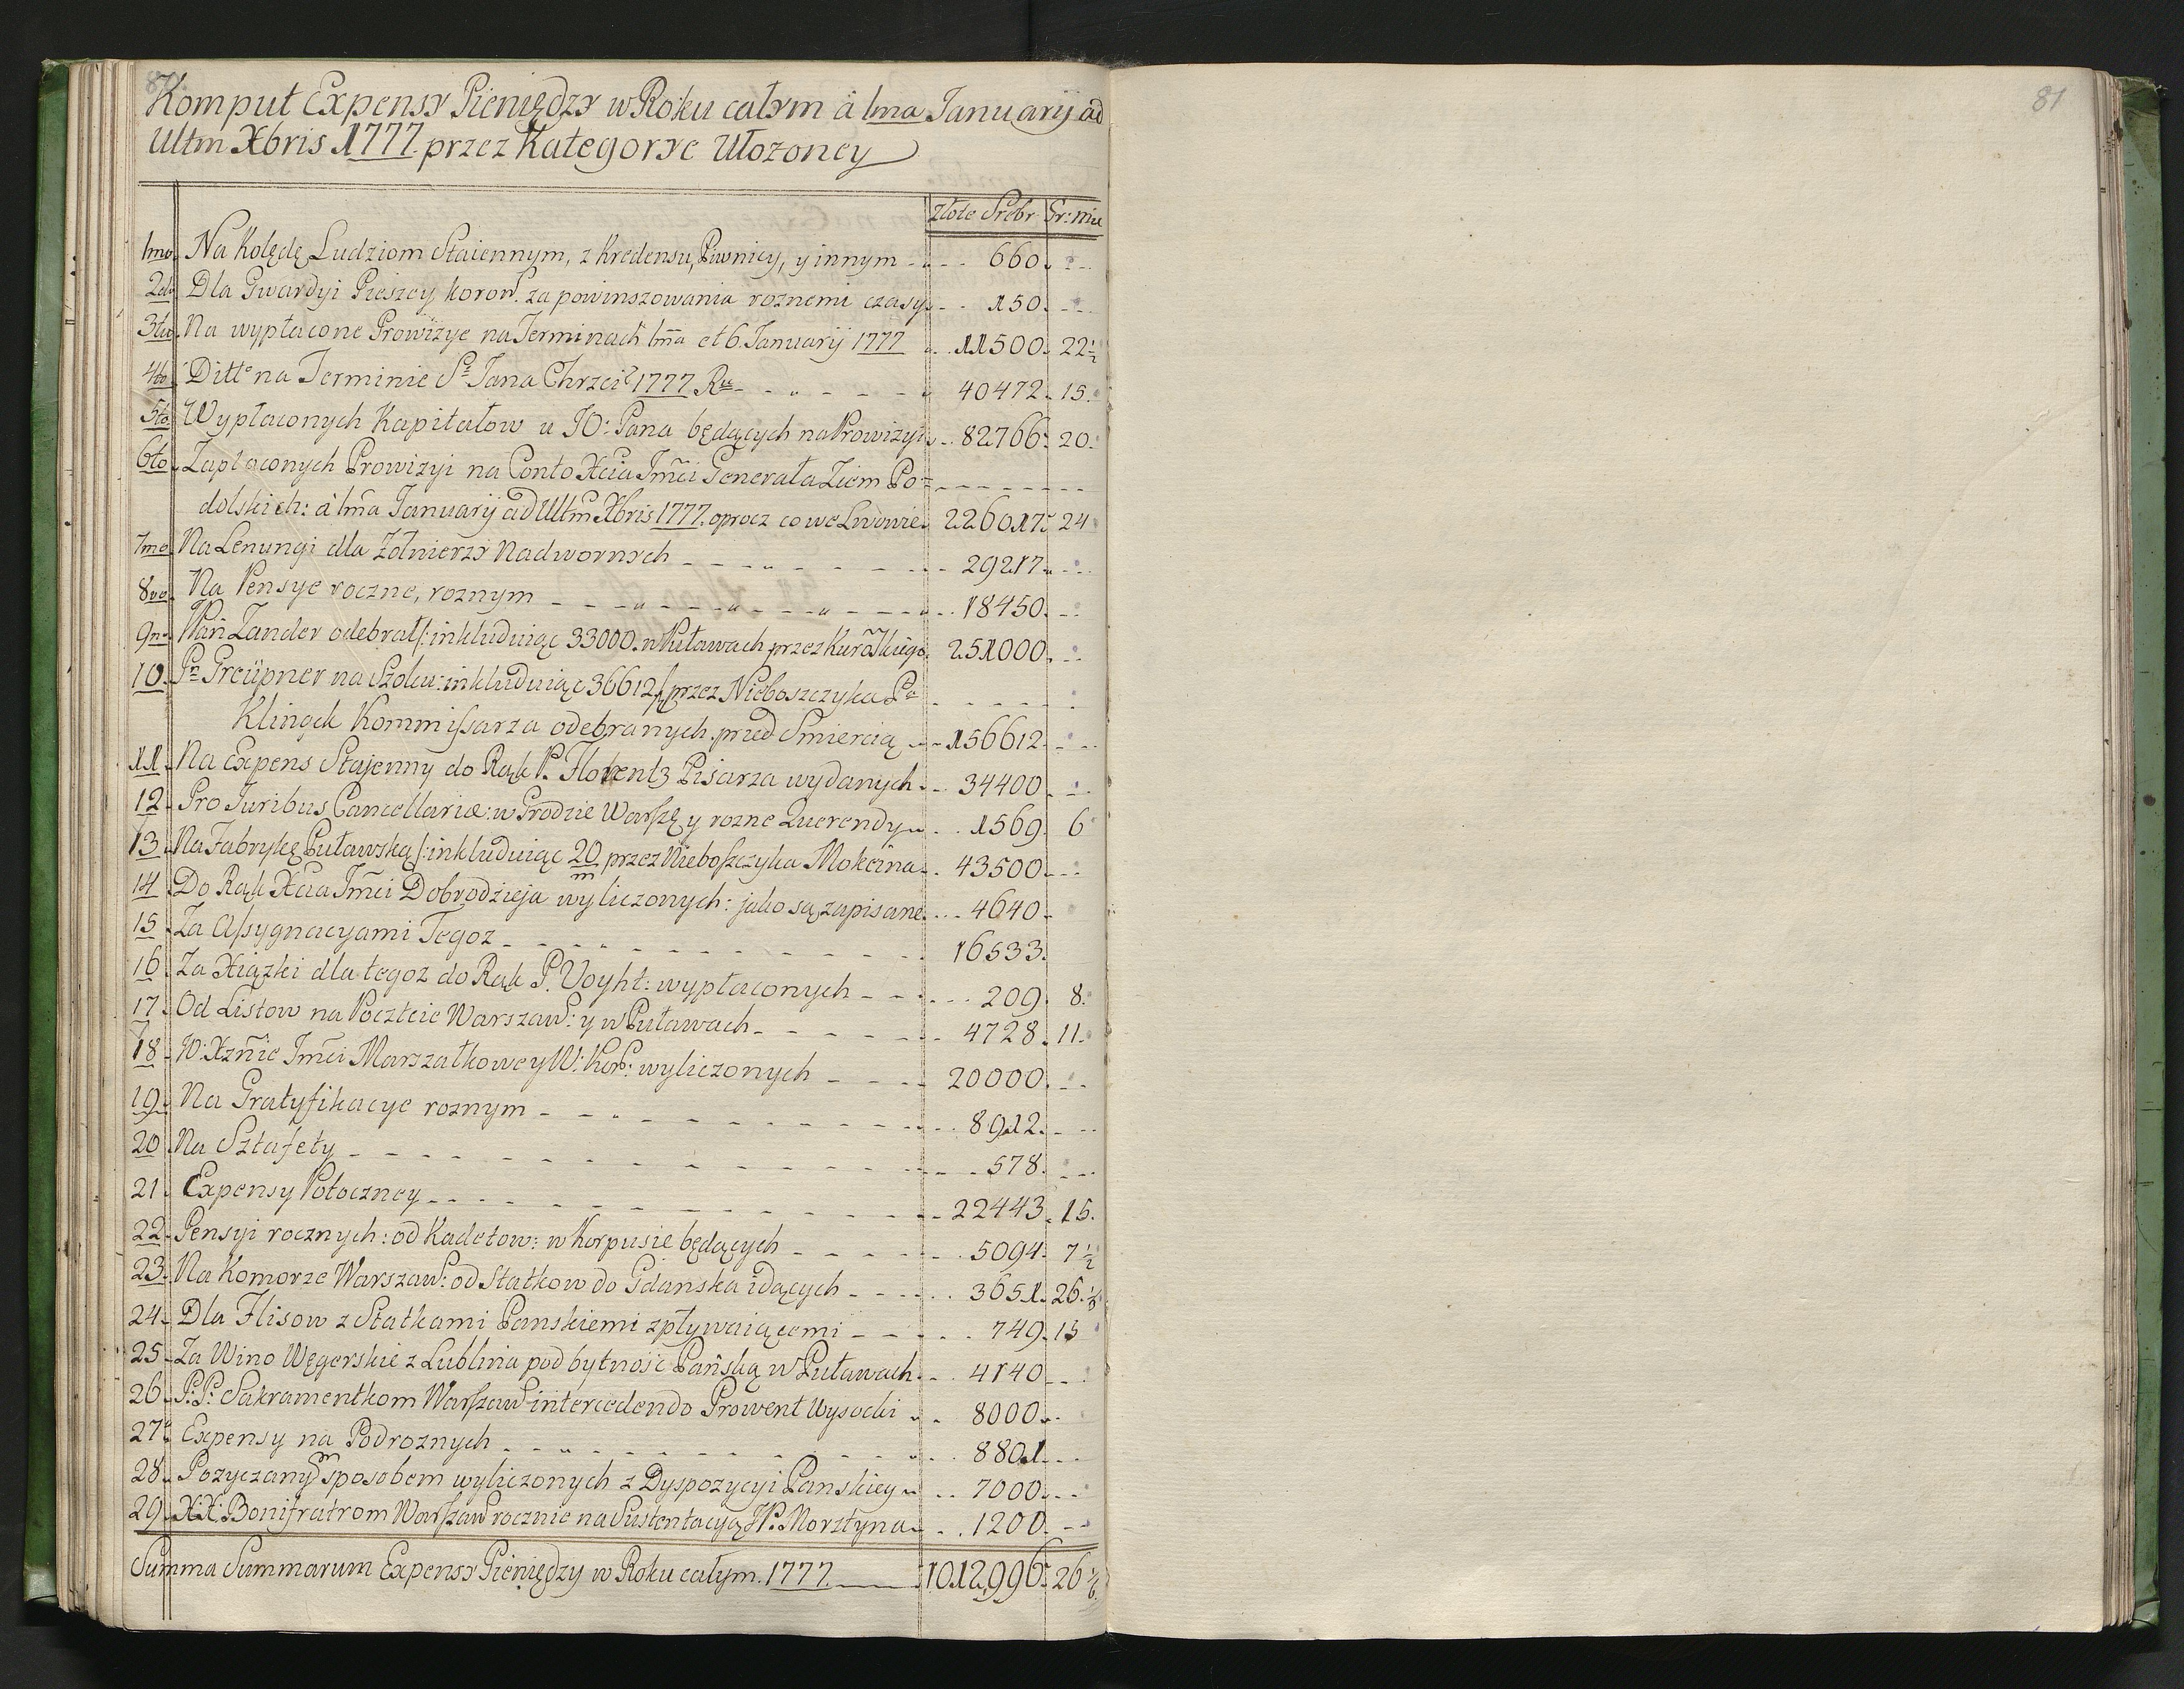 Komput Expensy Pieniędzy w Roku całym à 1ma Januarij ad
Ultm Xbris 1777 przez Kategorye Ułozoney
złote Srebr Gr: Mie
1mo Na Kolędę Ludziom Staiennym, z Kredensu, Piwnicy, y innym 660
2do Dla Gwardyi Pieszey Koron. za powinszowania roznemi czasy 150
3tio Na wypłacone Prowizye na Terminach 1ma et 6 Januarij 1777 11500 22½
4to Ditto na Terminie St Jana Chrzci. 1777 Ru 40472 15
5to Wypłaconych Kapitałow u JO: Pana będących na Prowizyi 82766 20
6to Zapłaconych Prowizyi na Conto Xcia Jmci Generała Ziem Po=
dolskich: à 1ma Januarij ad Ultm Xbris 1777. oprocz co we Lwowie 226017 24
7mo Na Lenungi dla Zołnierzy Nadwornych 29217
8vo Na Pensye roczne, roznym 18450
9no Pan Zander odebrał /: inkluduiąc 33000 w Puławach przez 251000
10. Pn Greüpner na Szolcu: inkluduiąc 36612 przez Nieboszczyka Pa
Klingek Kommissarza odebranych przed Smiercią 156612
11 Na Expens Stajenny do Rąk P. Florentz Pisarza wydanych 34400
12 Pro Juribus Cancellariæ: w Grodzie Warszę y rozne Querendy 1569 6
13 Na Fabrykę Puławską /: inkluduiąc 20/m przez Nieboszczyka Mokcina 43500
14 Do Rąk Xcia Jmci Dobrodzieja wyliczonych: jako są zapisane 4640
15 Za Assygnacyami Tegoz 16533
16 Za Xiązki dla tegoz do Rąk P. Voyht: wypłaconych 209 8
17 Od Listow na Poczteie Warszaw: y w Puławach 4728 11
18 JO: Xznie Jmci Marszałkowey W: Kor: wyliczonych 20000
19 Na Gratyfikacye roznym 8912
20 Na Sztafety 578
21 Expensy Potoczney 22443 15
22 Pensyi rocznych: od Kadetow: w Korpusie będących 5094 7½
23 Na Komorze Warszaw: od Statkow do Gdanska idących 3651 26
24 Dla Flisow z Statkami Panskiemi zpływaiącemi 749 15
25 Za Wino Węgerskie z Lublina pod bytnosc Pańską w Puławach 4140
26 P: P: Sakramentkom Warszaw intercedendo Prowent Wysocki 8000
27 Expensy na Podroznych 8801
28 Pozyczanym sposobem wyliczonych z Dyspozycyi Panskiey 7000
29 X: X: Bonifratrom Warszaw rocznie na Sustentacyą JP: Morsztyna 1200
Summa Summarum Expensy Pieniędzy w Roku całym. 1777 1012,996 26
81